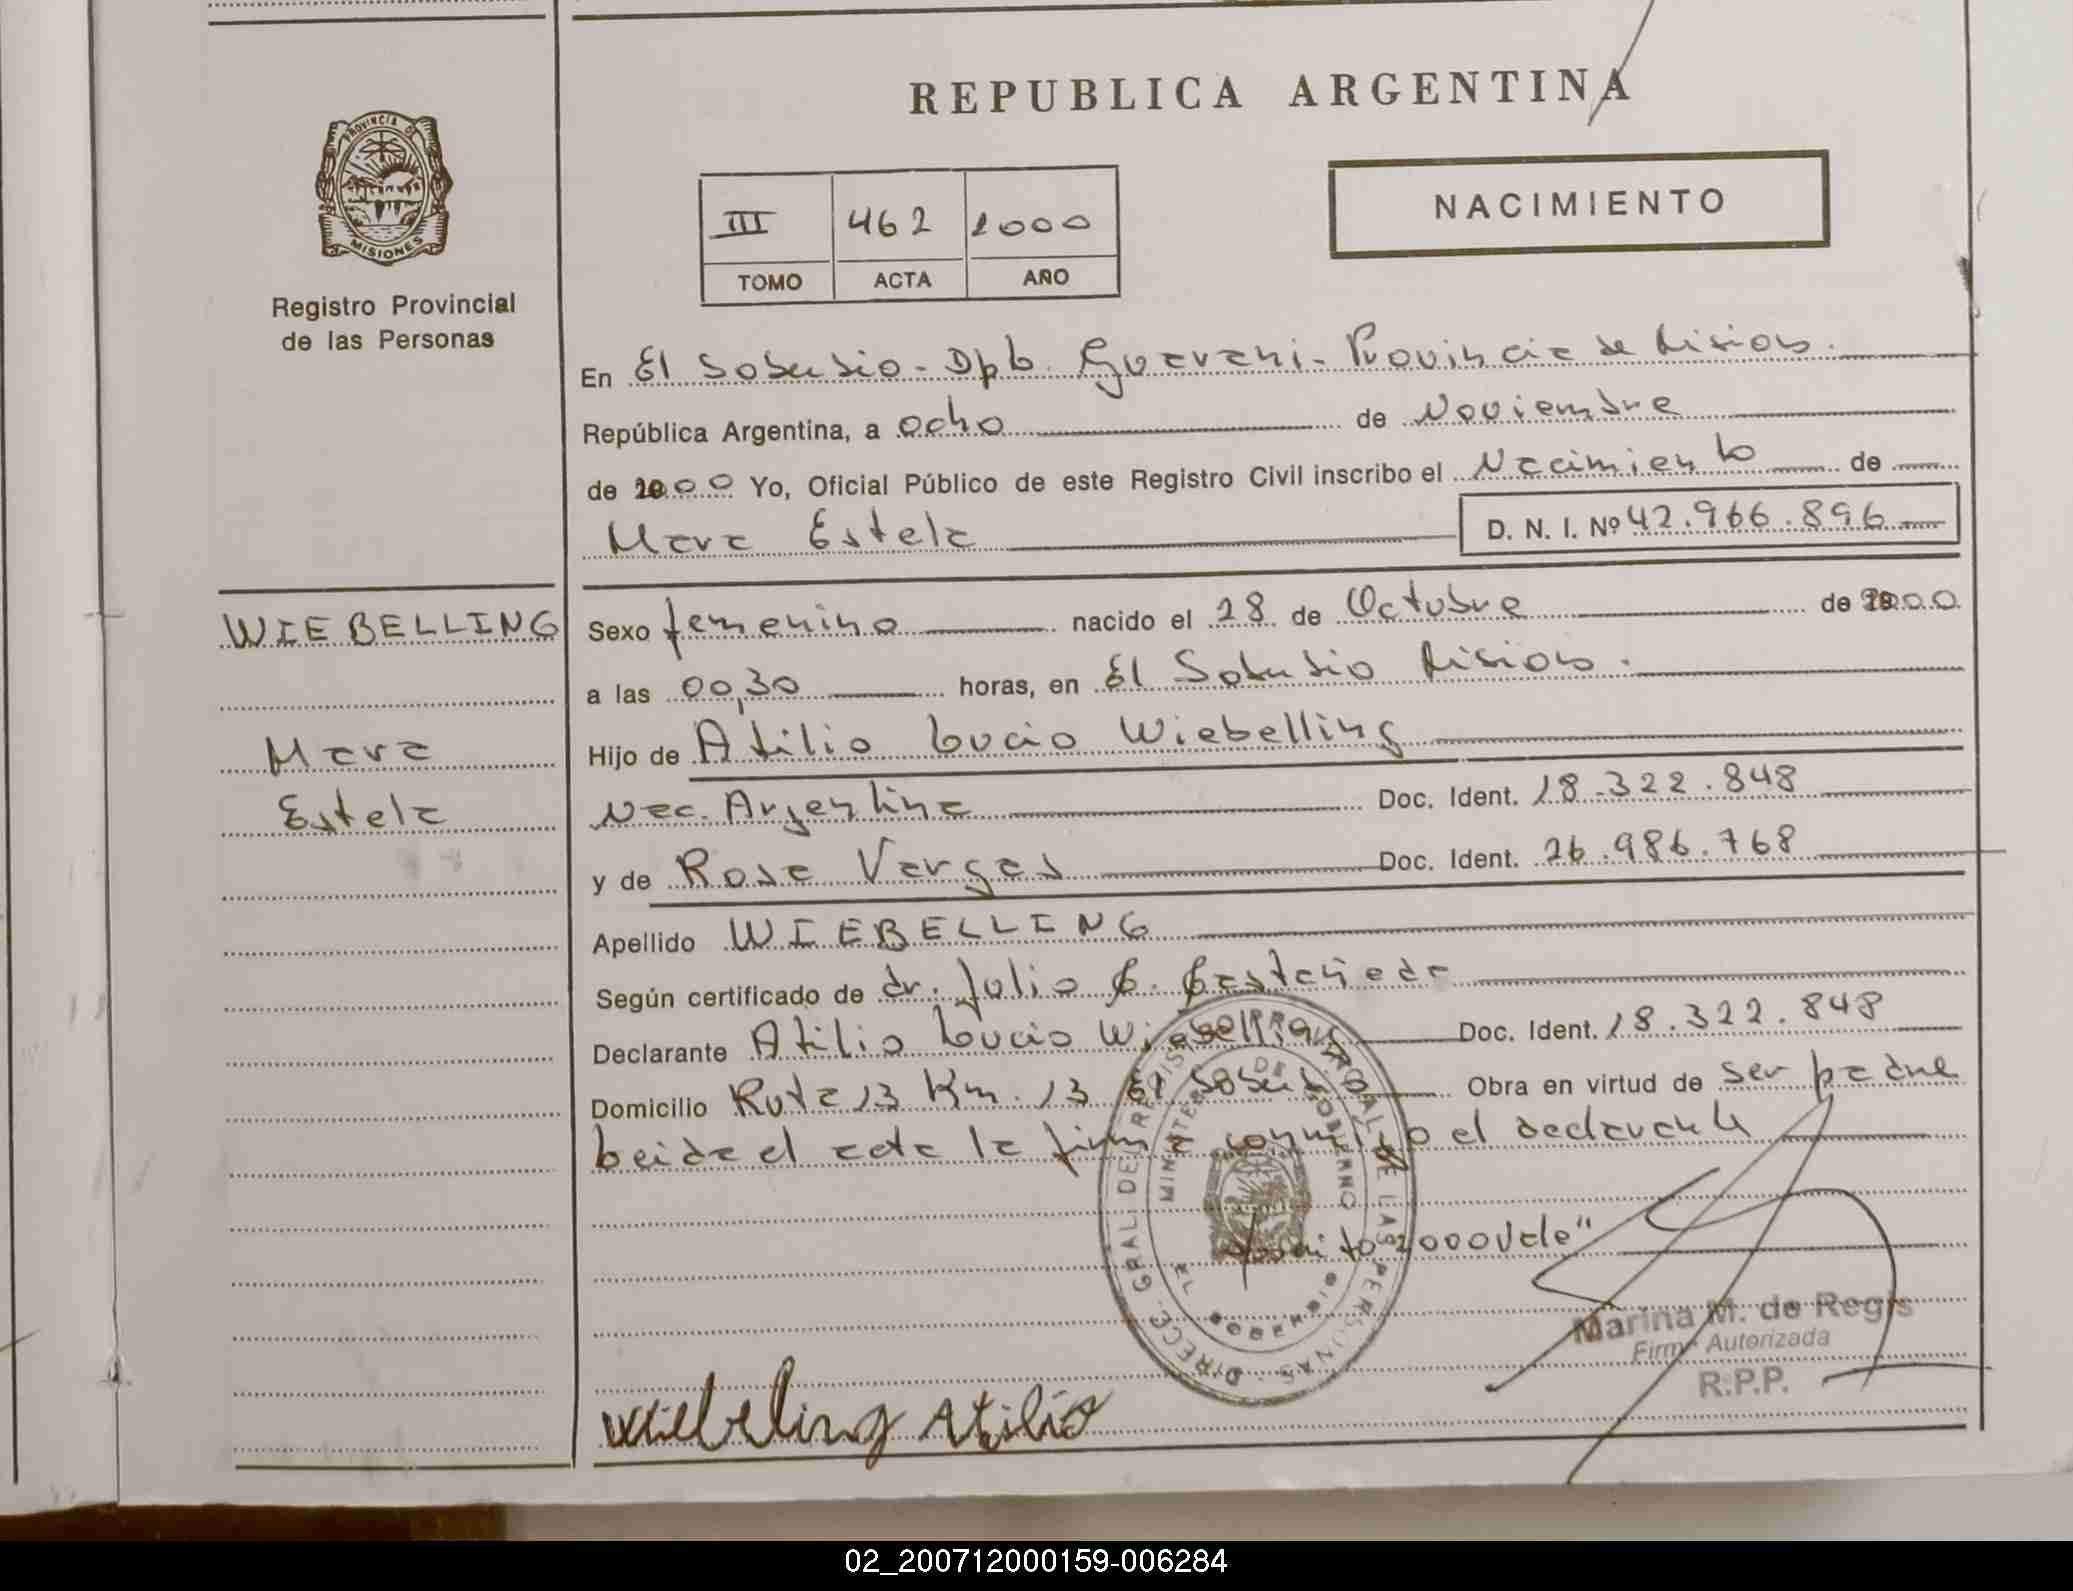 REPUBLICA ARGENTINA
PROVINCIA DE
MISIONES
Registro Provincial
de las Personas
III 462 2000
TOMO ACTA AÑO
NACIMIENTO
En El Soberbio - Dpto. Guarani - Provincia de Misiones.
República Argentina, a ocho de Noviembre
de 2000 Yo, Oficial Público de este Registro Civil inscribo el Nacimiento de
Mara Estela D. N. I. Nº 42.966.896
WIEBELLING
Mara
Estela
Sexo femenino nacido el 28 de Octubre de 2000
a las 00,30 horas, en El Soberbio Misiones.
Hijo de Atilio Lucio Wiebelling
Nac. Argentina Doc. Ident. 18.322.848
y de Rosa Vargas Doc. Ident. 26.986.768
Apellido WIEBELLING
Según certificado de dr. Julio C. Castañeda
Declarante Atilio Lucio Wiebelling Doc. Ident. 18.322.848
Domicilio Ruta 13 Km. 13 El Soberbio Obra en virtud de ser padre
Leida el acta la firma conmigo el declarante
2000 Vale"
DIRECC. GRAL. DEL REGISTRO PROVINCIAL DE LAS PERSONAS
MINISTERIO DE GOBIERNO
EL SOBERBIO
Marina M. de Regis
Firma Autorizada
R.P.P.
Wiebeling Atilio
02_200712000159-006284